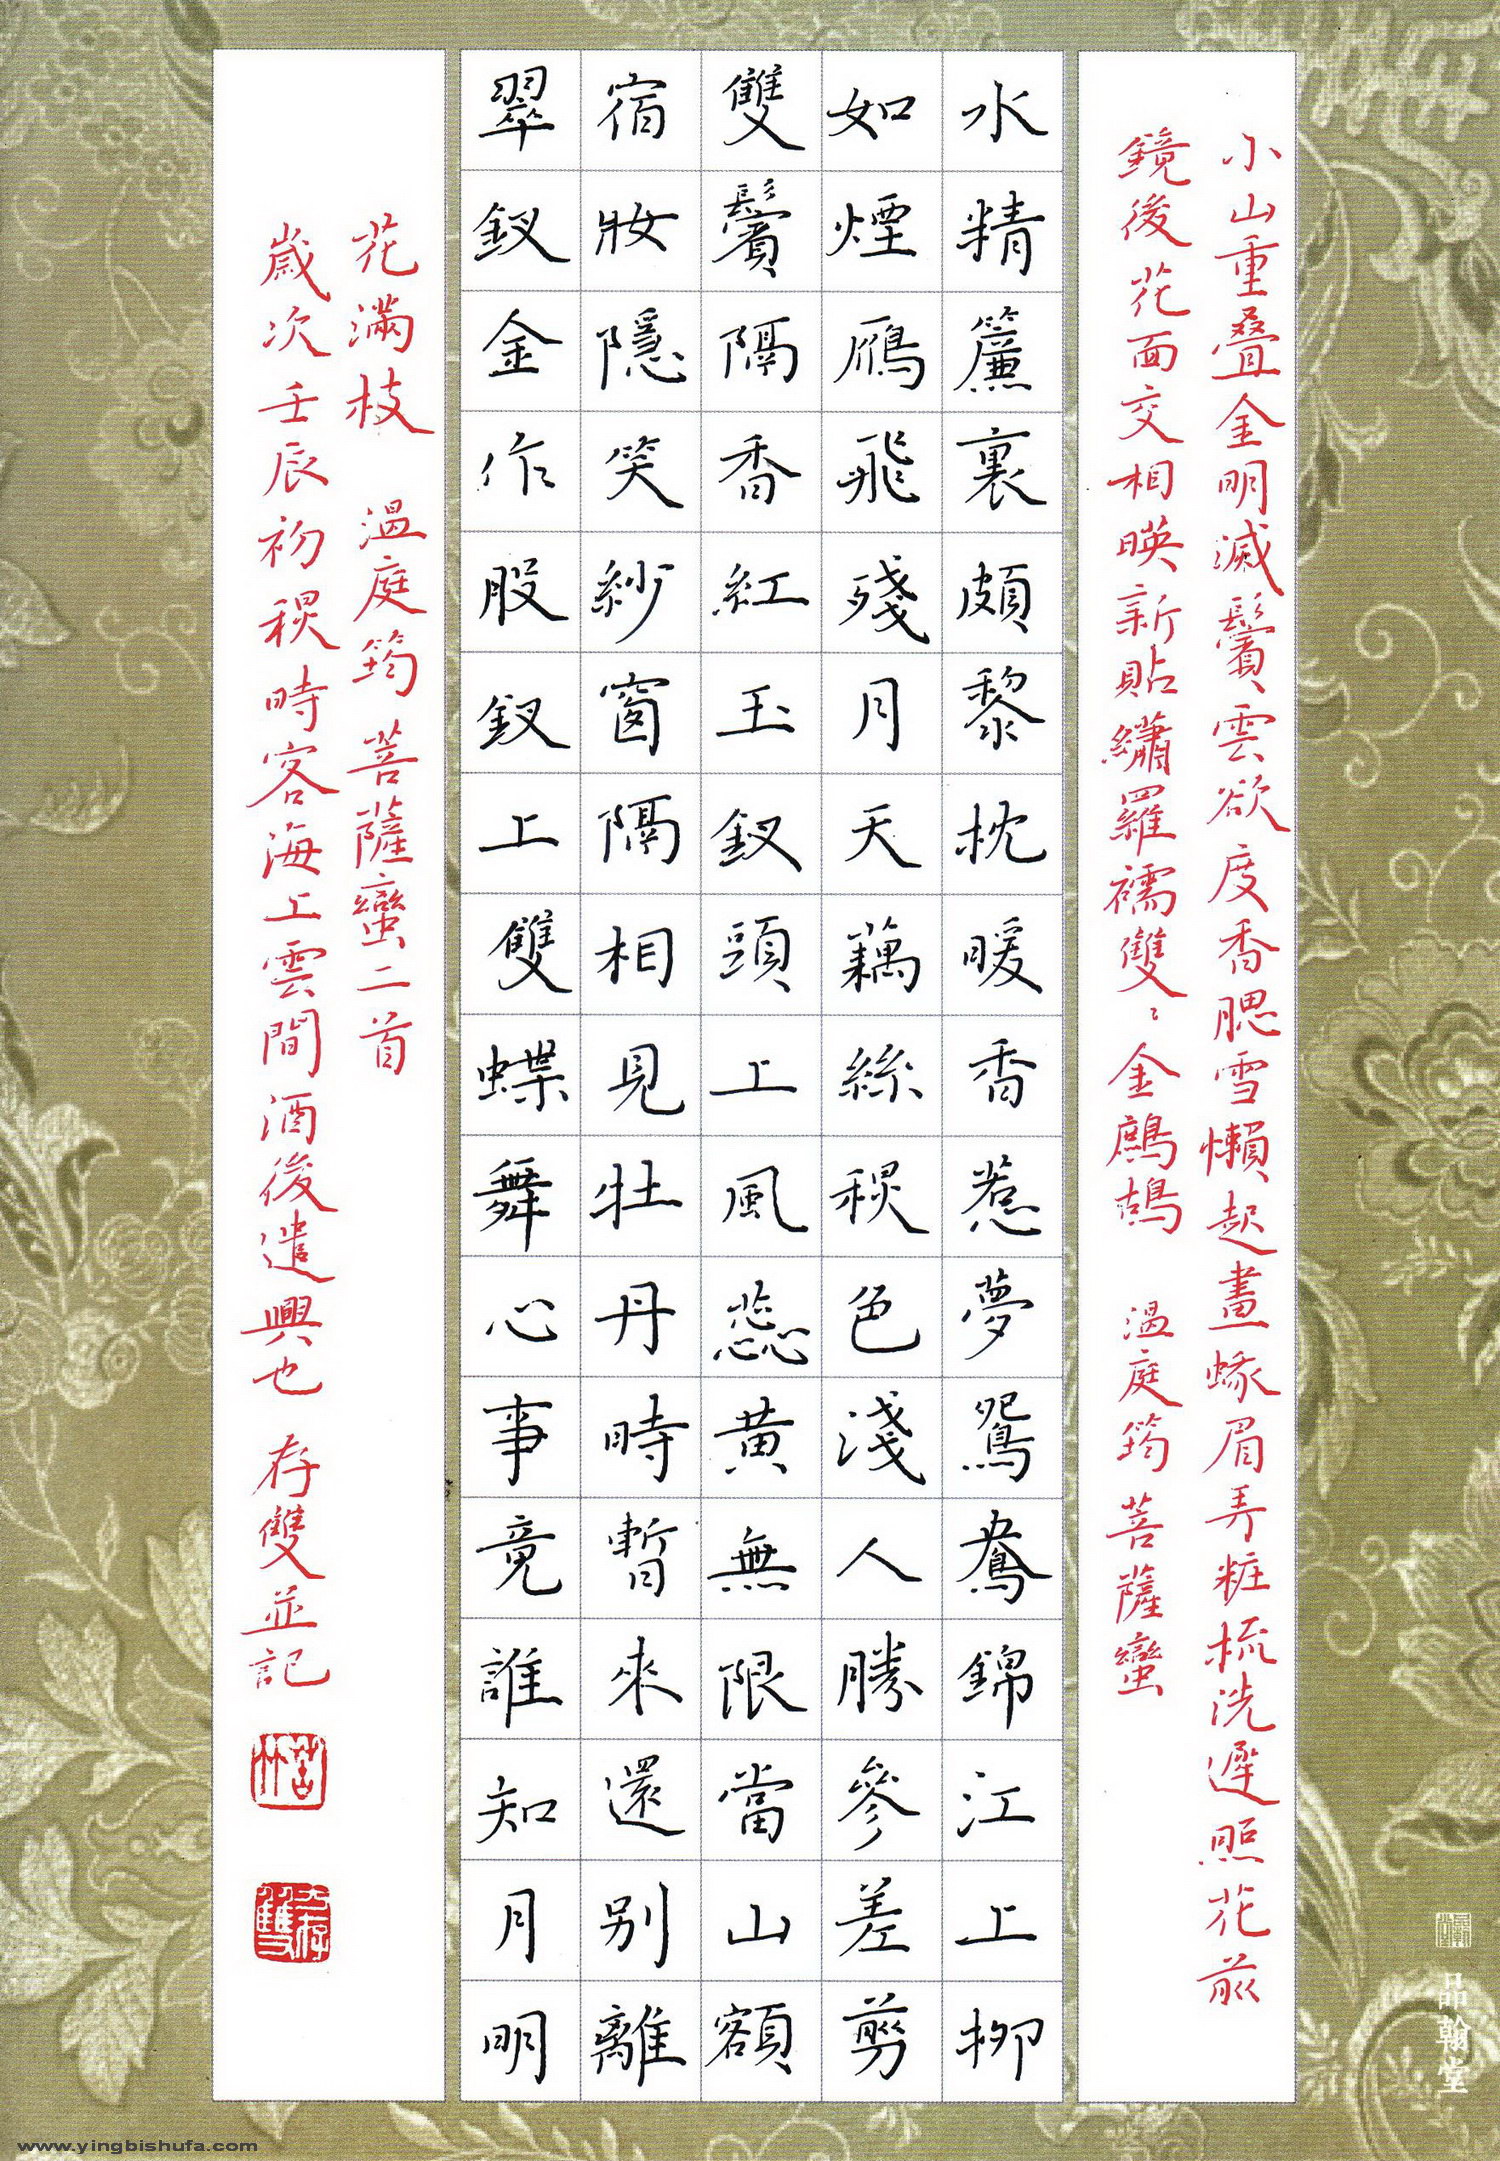 小山重疊金明滅鬢雲欲度香腮雪懶起畫蛾眉弄粧梳洗遲照花前
鏡後花面交相暎新貼繡羅襦雙〻金鷓鴣 溫庭筠 菩薩蠻
水精簾裏頗黎枕暖香惹夢鴛鴦錦江上柳
如煙鴈飛殘月天藕絲穐色淺人勝參差剪
雙鬢隔香紅玉釵頭上風蕊黃無限當山額
宿妝隱笑紗窗隔相見牡丹時暫來還別離
翠釵金作股釵上雙蝶舞心事竟誰知月明
花滿枝 溫庭筠 菩薩蠻二首
歲次壬辰初穐時客海上雲間酒後遣興也 存雙並記
品翰堂
www.yingbishufa.com